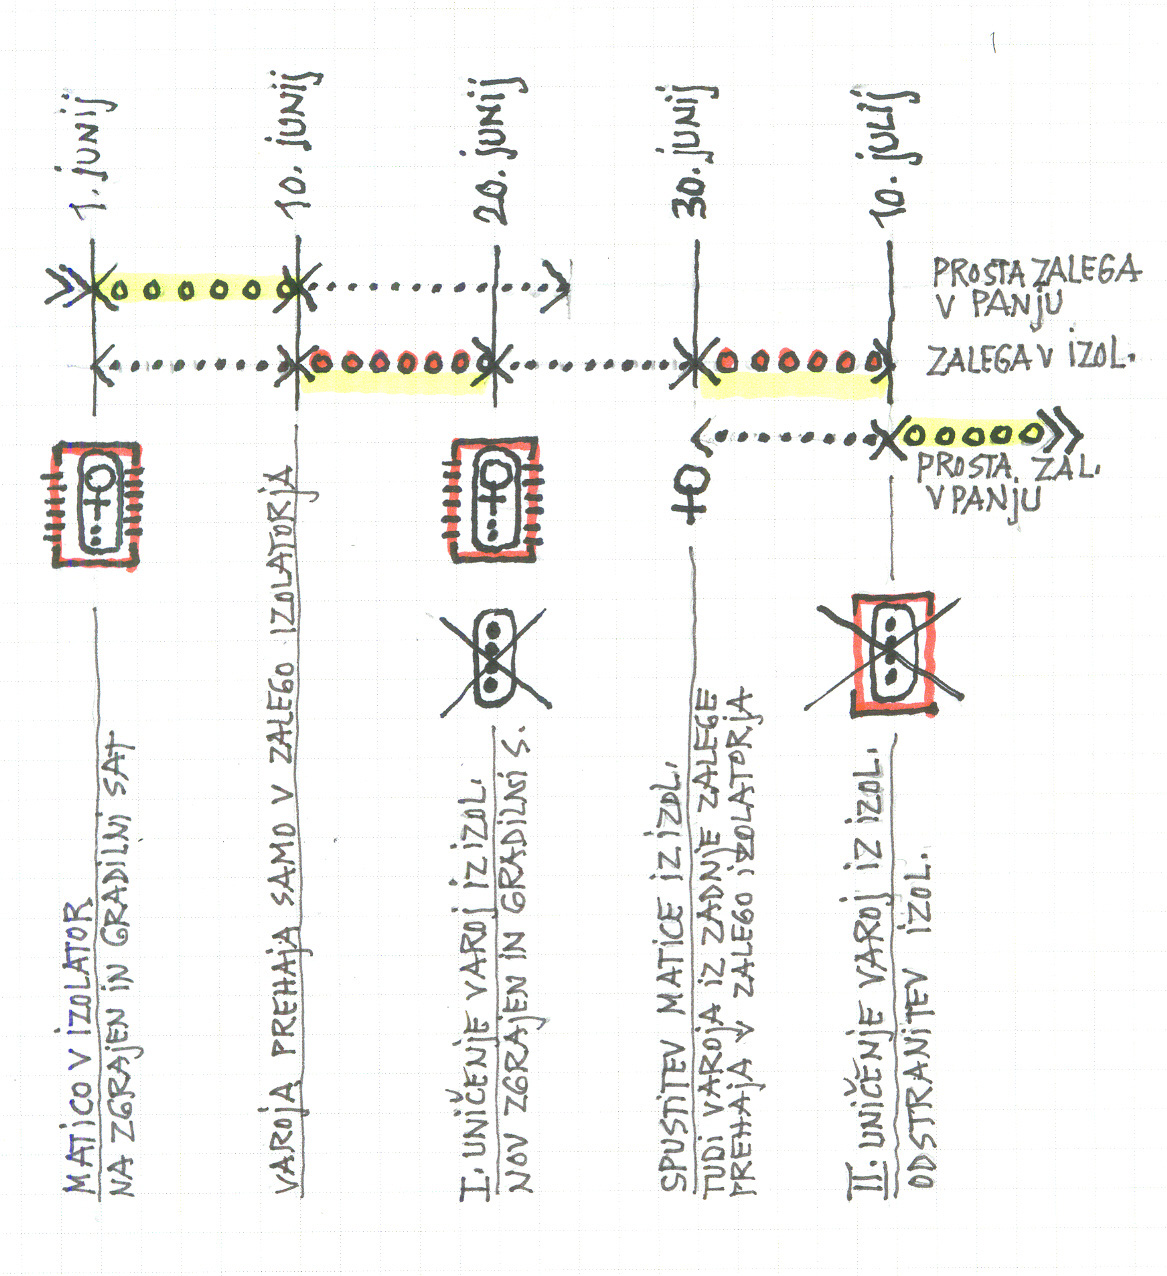 1. junij
10. junij
20. junij
30. junij
10. julij
PROSTA ZALEGA
V PANJU
ZALEGA V IZOL.
PROSTA ZAL.
V PANJU
MATICO V IZOLATOR
NA ZGRAJEN IN GRADILNI SAT
VAROJA PREHAJA SAMO V ZALEGO IZOLATORJA
I. UNIČENJE VAROJ IZ IZOL.
NOV ZGRAJEN IN GRADILNI S.
SPUSTITEV MATICE IZ IZOL.
TUDI VAROJA IZ ZADNJE ZALEGE
PREHAJA V ZALEGO IZOLATORJA
II. UNIČENJE VAROJ IZ IZOL.
ODSTRANITEV IZOL.